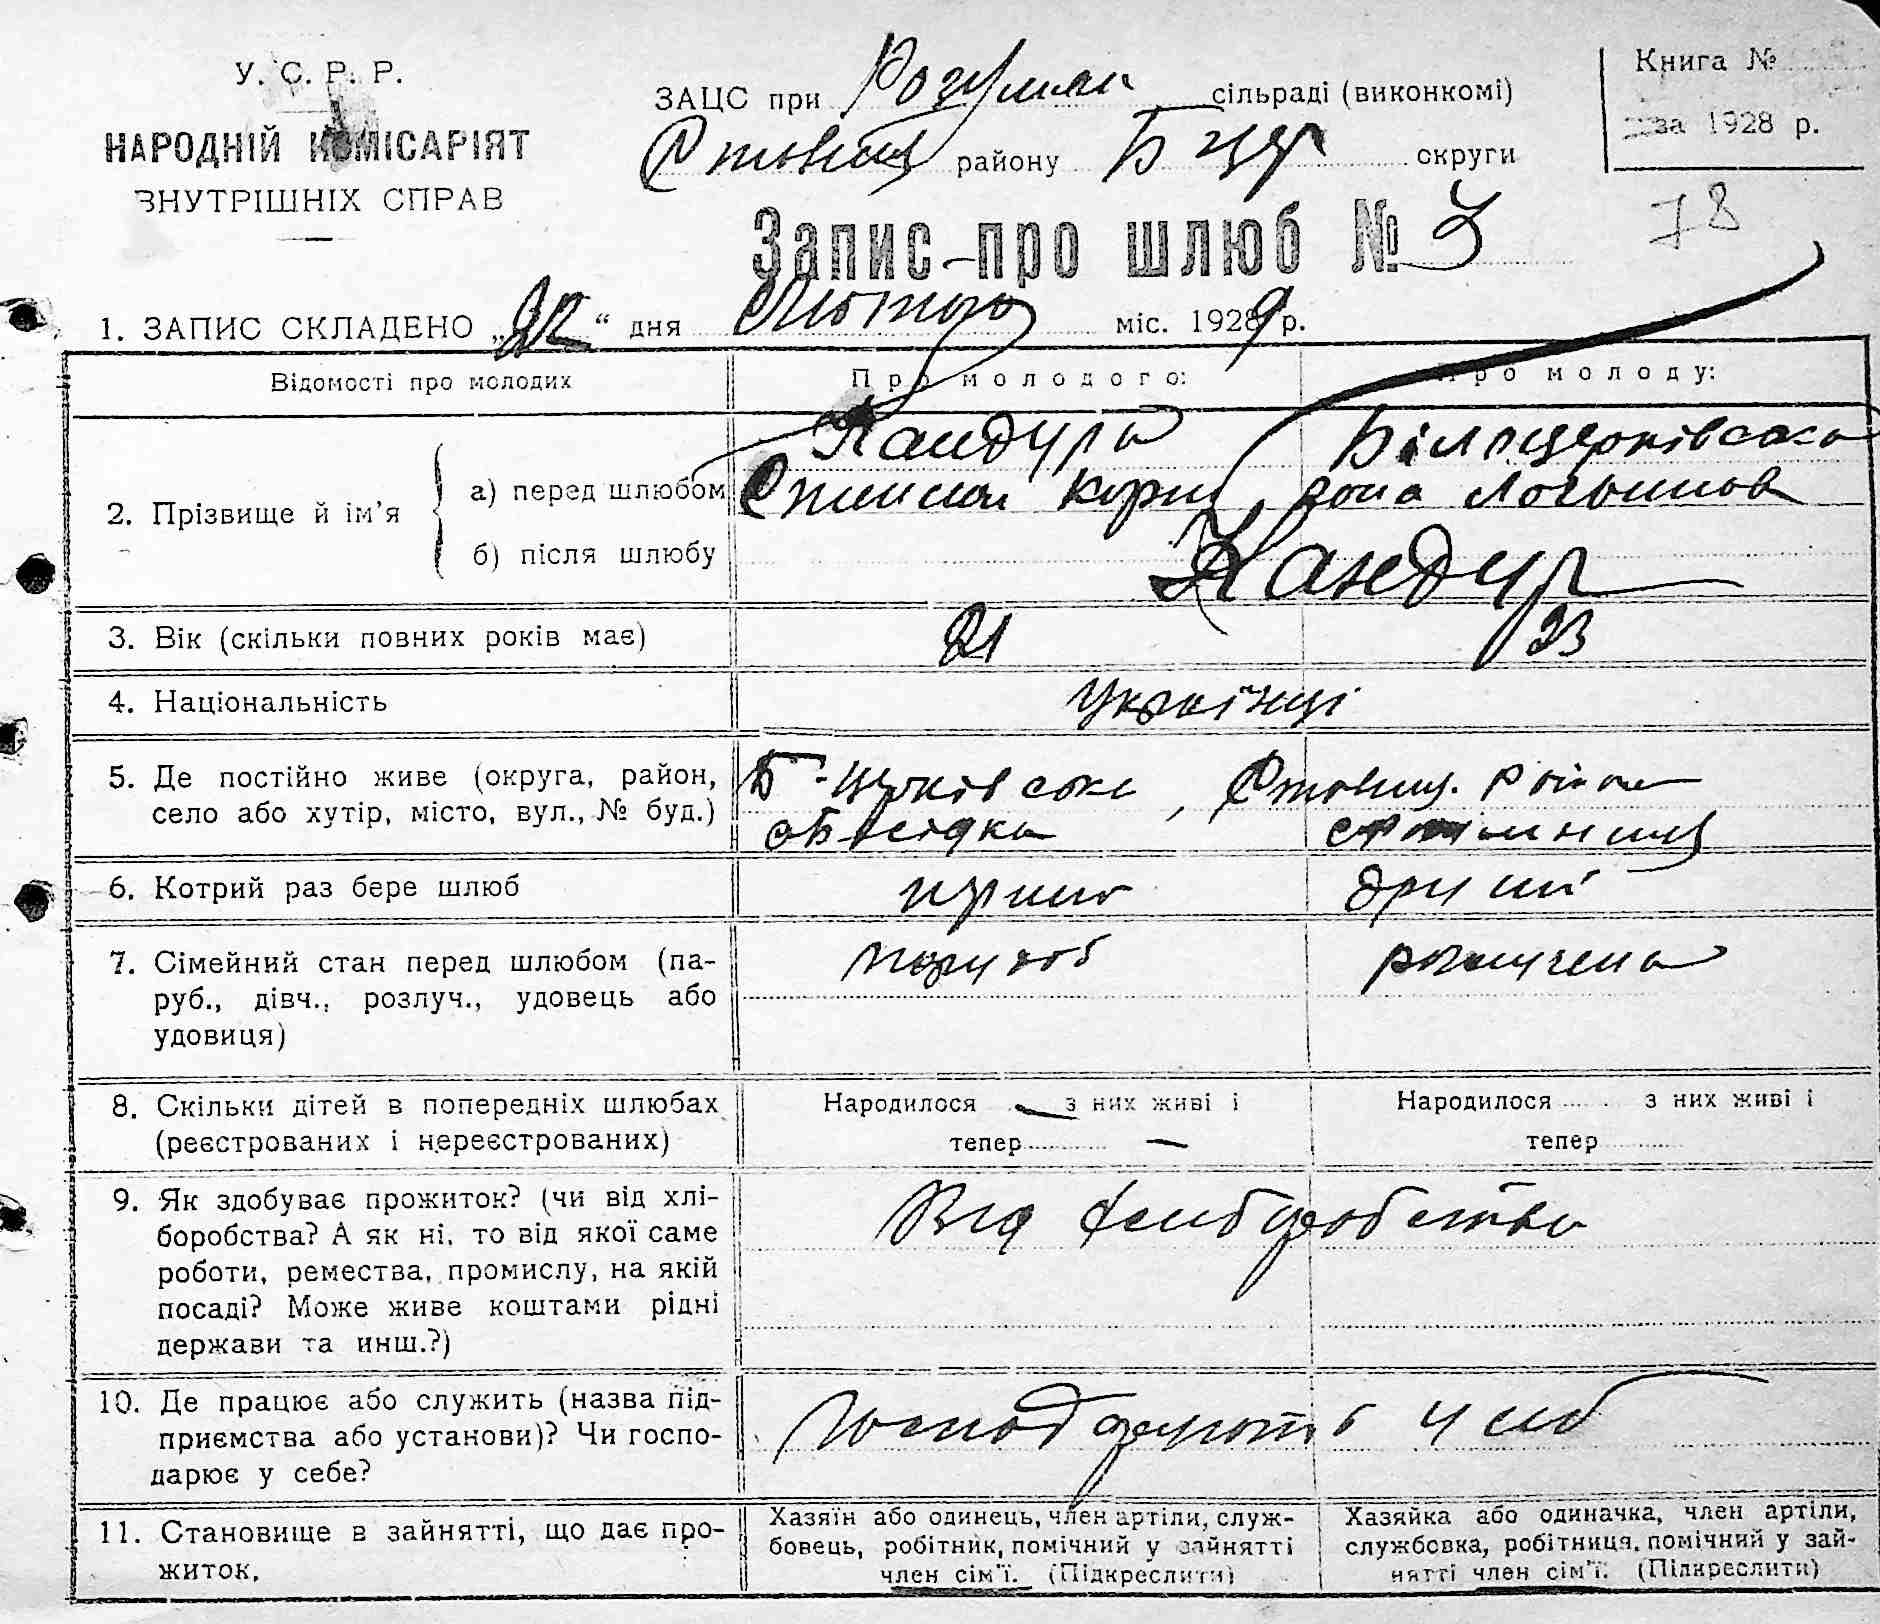 У. С. Р. Р.
НАРОДНІЙ КОМІСАРІЯТ
ВНУТРІШНІХ СПРАВ
ЗАЦС при сільраді (виконкомі)
району Б Цер округи
Книга №
за 1928 р.
78
Запис про шлюб №
1. ЗАПИС СКЛАДЕНО „22“ дня Лютого міс. 1929 р.
Відомості про молодих
Про молодого:
Про молоду:
2. Прізвище й ім'я
а) перед шлюбом
Кандура
Білоцерківська
б) після шлюбу
Кандур
3. Вік (скільки повних років має)
21
23
4. Національність
Українці
5. Де постійно живе (округа, район,
село або хутір, місто, вул., № буд.)
6. Котрий раз бере шлюб
перший
другий
7. Сімейний стан перед шлюбом (па-
руб., дівч., розлуч., удовець або
удовиця)
парубок
розлучена
8. Скільки дітей в попередніх шлюбах
(реєстрованих і нереєстрованих)
Народилося — з них живі і
тепер —
Народилося з них живі і
тепер
9. Як здобуває прожиток? (чи від хлі-
боробства? А як ні, то від якої саме
роботи, ремества, промислу, на якій
посаді? Може живе коштами рідні
держави та инш.?)
Від хліборобства
10. Де працює або служить (назва під-
приємства або установи)? Чи госпо-
дарює у себе?
11. Становище в зайнятті, що дає про-
житок.
Хазяїн або одинець, член артіли, служ-
бовець, робітник, помічний у зайнятті
член сім'ї. (Підкреслити)
Хазяйка або одиначка, член артіли,
службовка, робітниця, помічний у зай-
нятті член сім'ї. (Підкреслити)